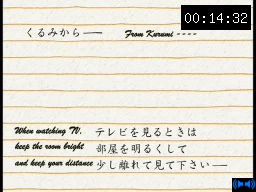 00:14:32
くるみから―― From Kurumi ----
When watching TV, テレビを見るときは
keep the room bright 部屋を明るくして
and keep your distance 少し離れて見て下さい――